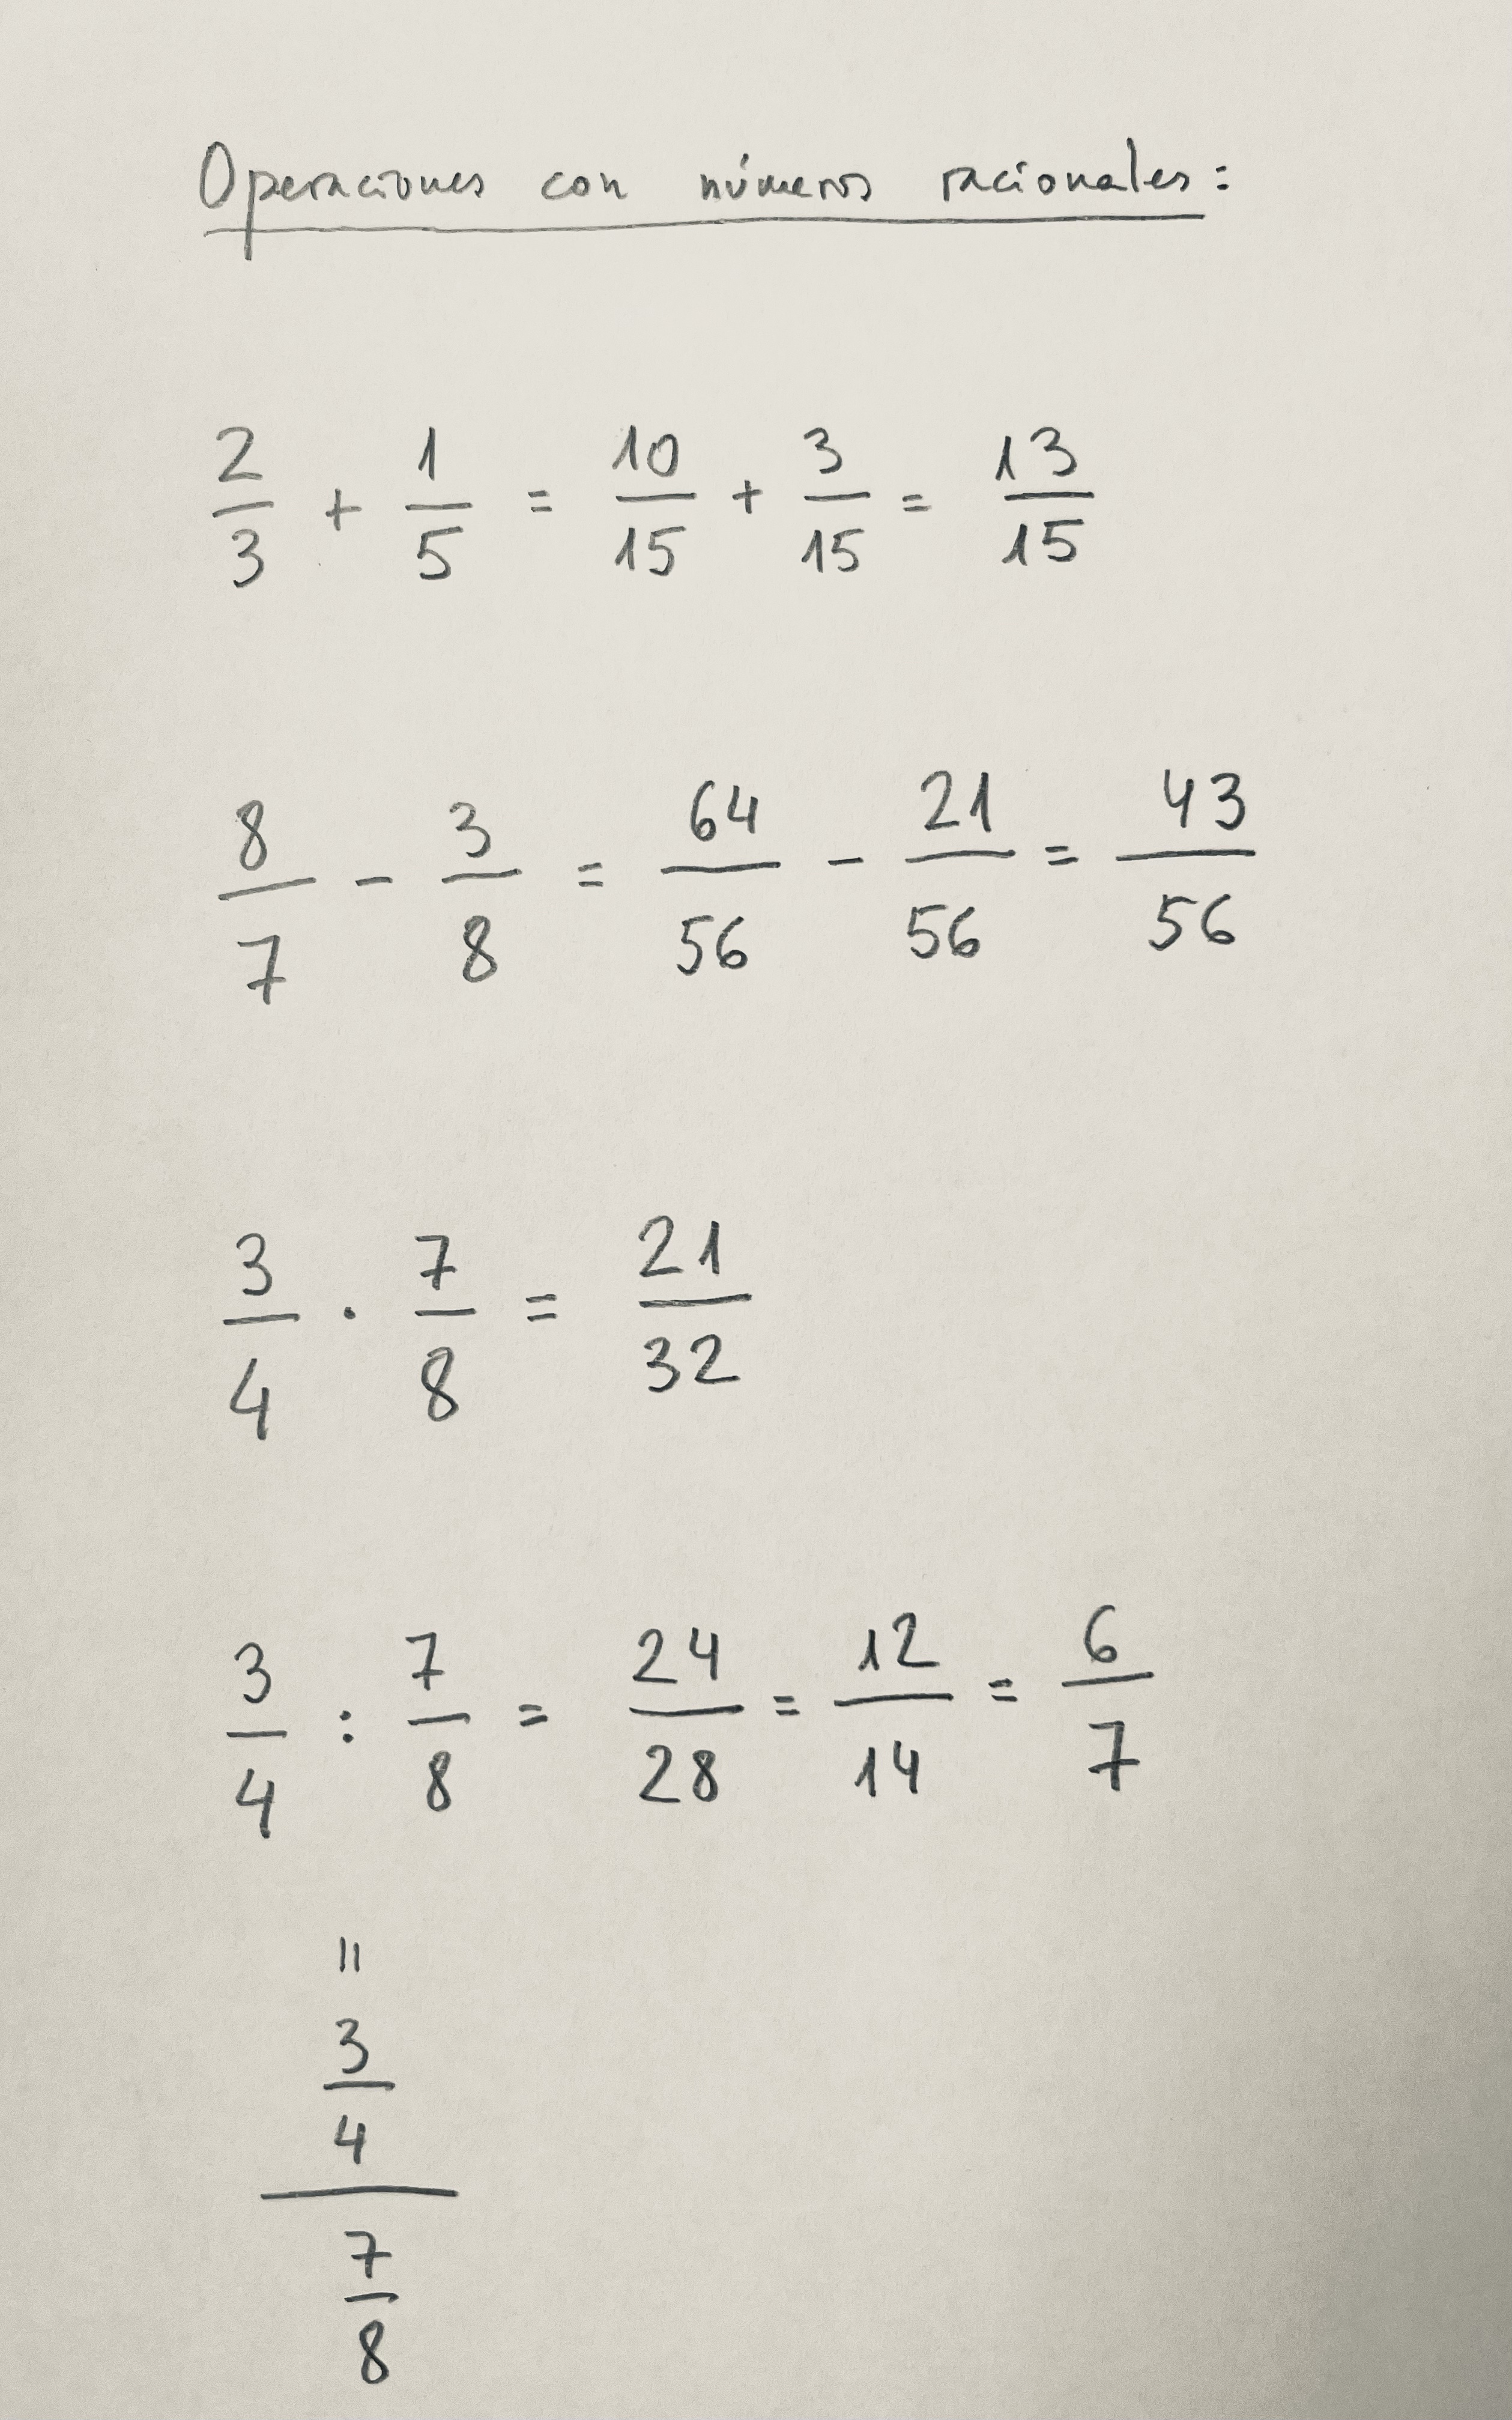 Operaciones con números racionales:
2/3 + 1/5 = 10/15 + 3/15 = 13/15
8/7 - 3/8 = 64/56 - 21/56 = 43/56
3/4 · 7/8 = 21/32
3/4 : 7/8 = 24/28 = 12/14 = 6/7
=
3/4
7/8